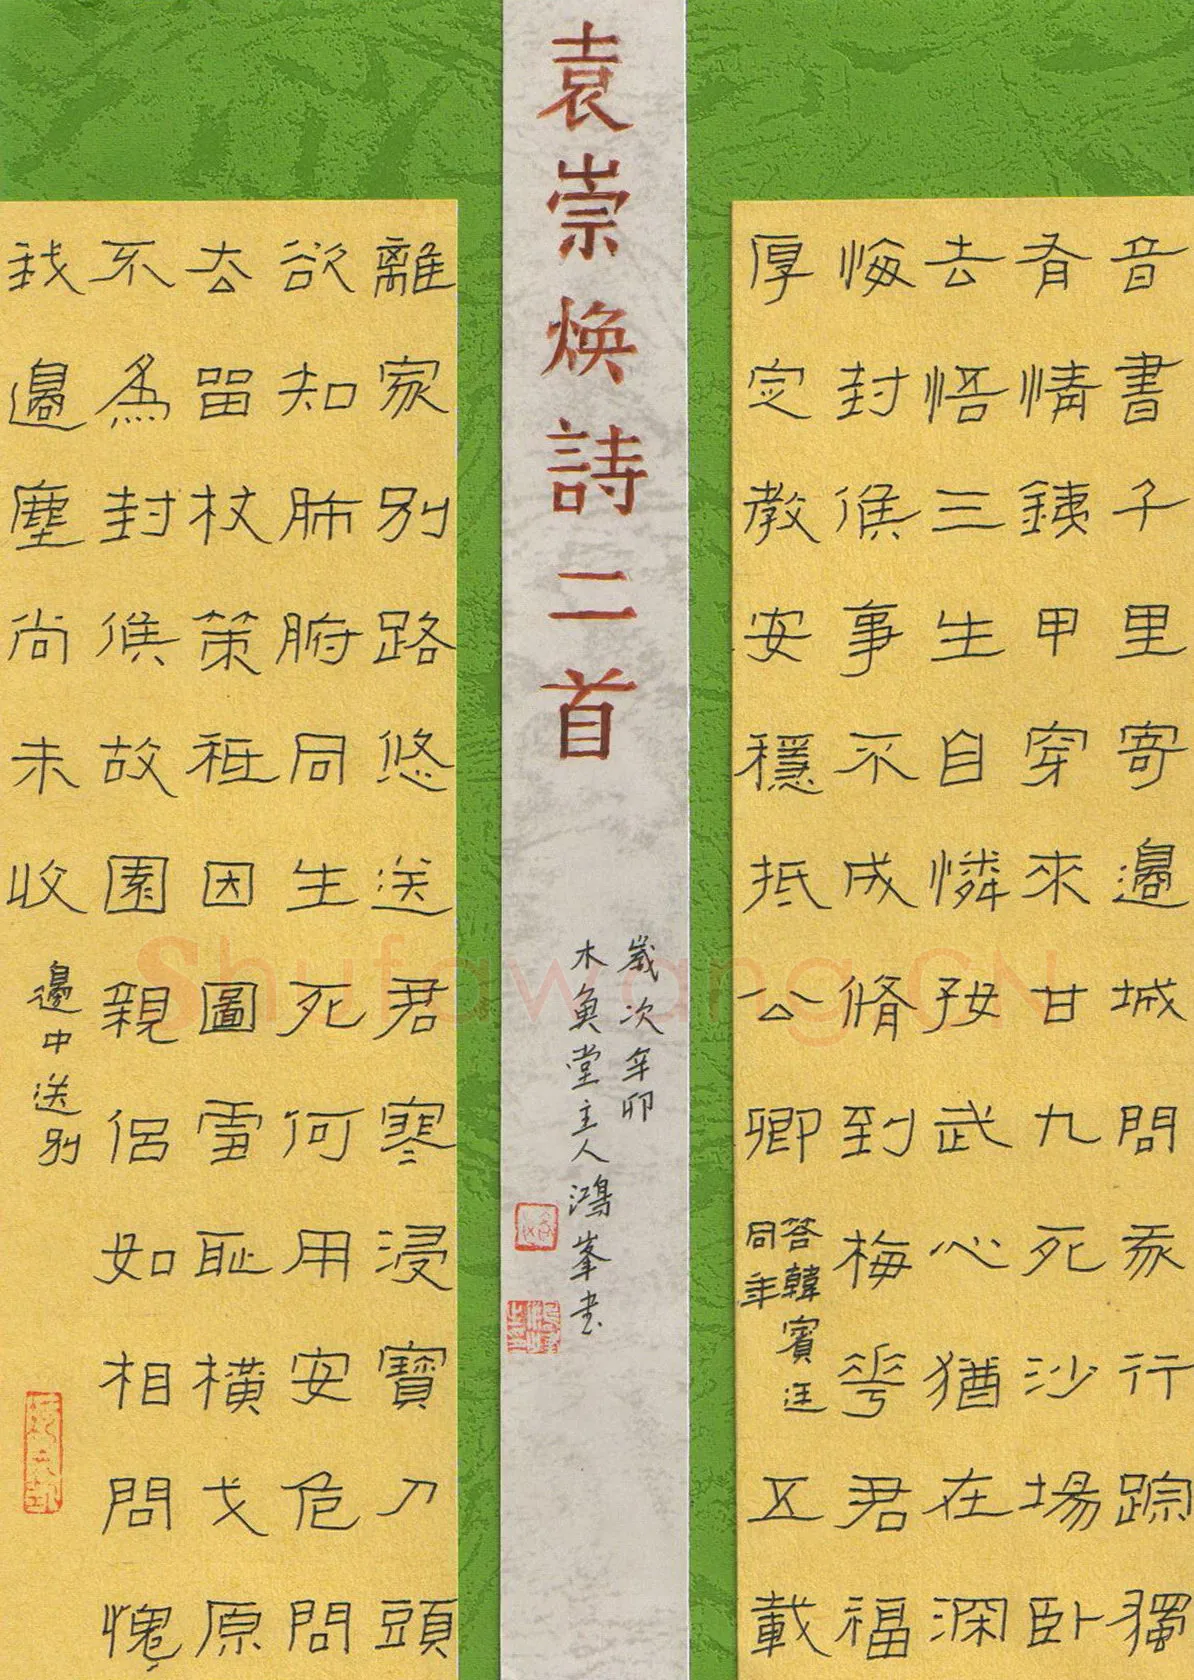 袁崇煥詩二首
音書千里寄邊城問行踪獨
有情鐵甲穿來甘九死沙場臥
去悟三生自憐投武心猶在深
悔封侯事不成脩到梅花君福
厚定教安穩抵公卿
答韓賓廷
同年
五載
離家別路悠送君寒浸寶刀頭
欲知肺腑同生死何用安危問
去留杖策祗因圖雪恥橫戈原
不為封侯故園親侶如相問愧
我邊塵尚未收
邊中送別
歲次辛卯
木魚堂主人鴻峯書
Shufawang.CN